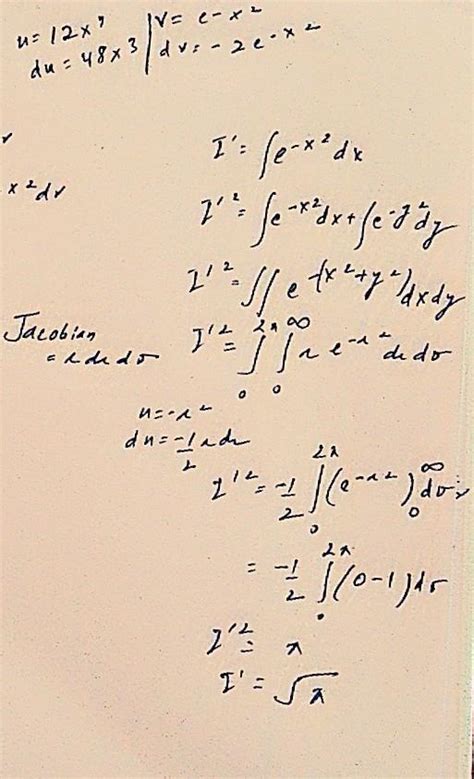 u = 12x³ | v = e-x²
du = 48x3 | dv = -2e-x²
I' = ∫e^-x² dx
x² dv
I'² = ∫e^-x² dx + ∫e^-y² dy
I'² = ∫∫ e^-(x²+y²) dxdy
Jacobian
= r dr dσ
I'² = ∫₀^2π ∫₀^∞ r e^-r² dr dσ
u = -r²
du = -1/2 r dr
I'² = -1/2 ∫₀^2π (e^-r²)₀^∞ dσ
= -1/2 ∫₀^2π (0-1) dσ
I'² = π
I' = √π